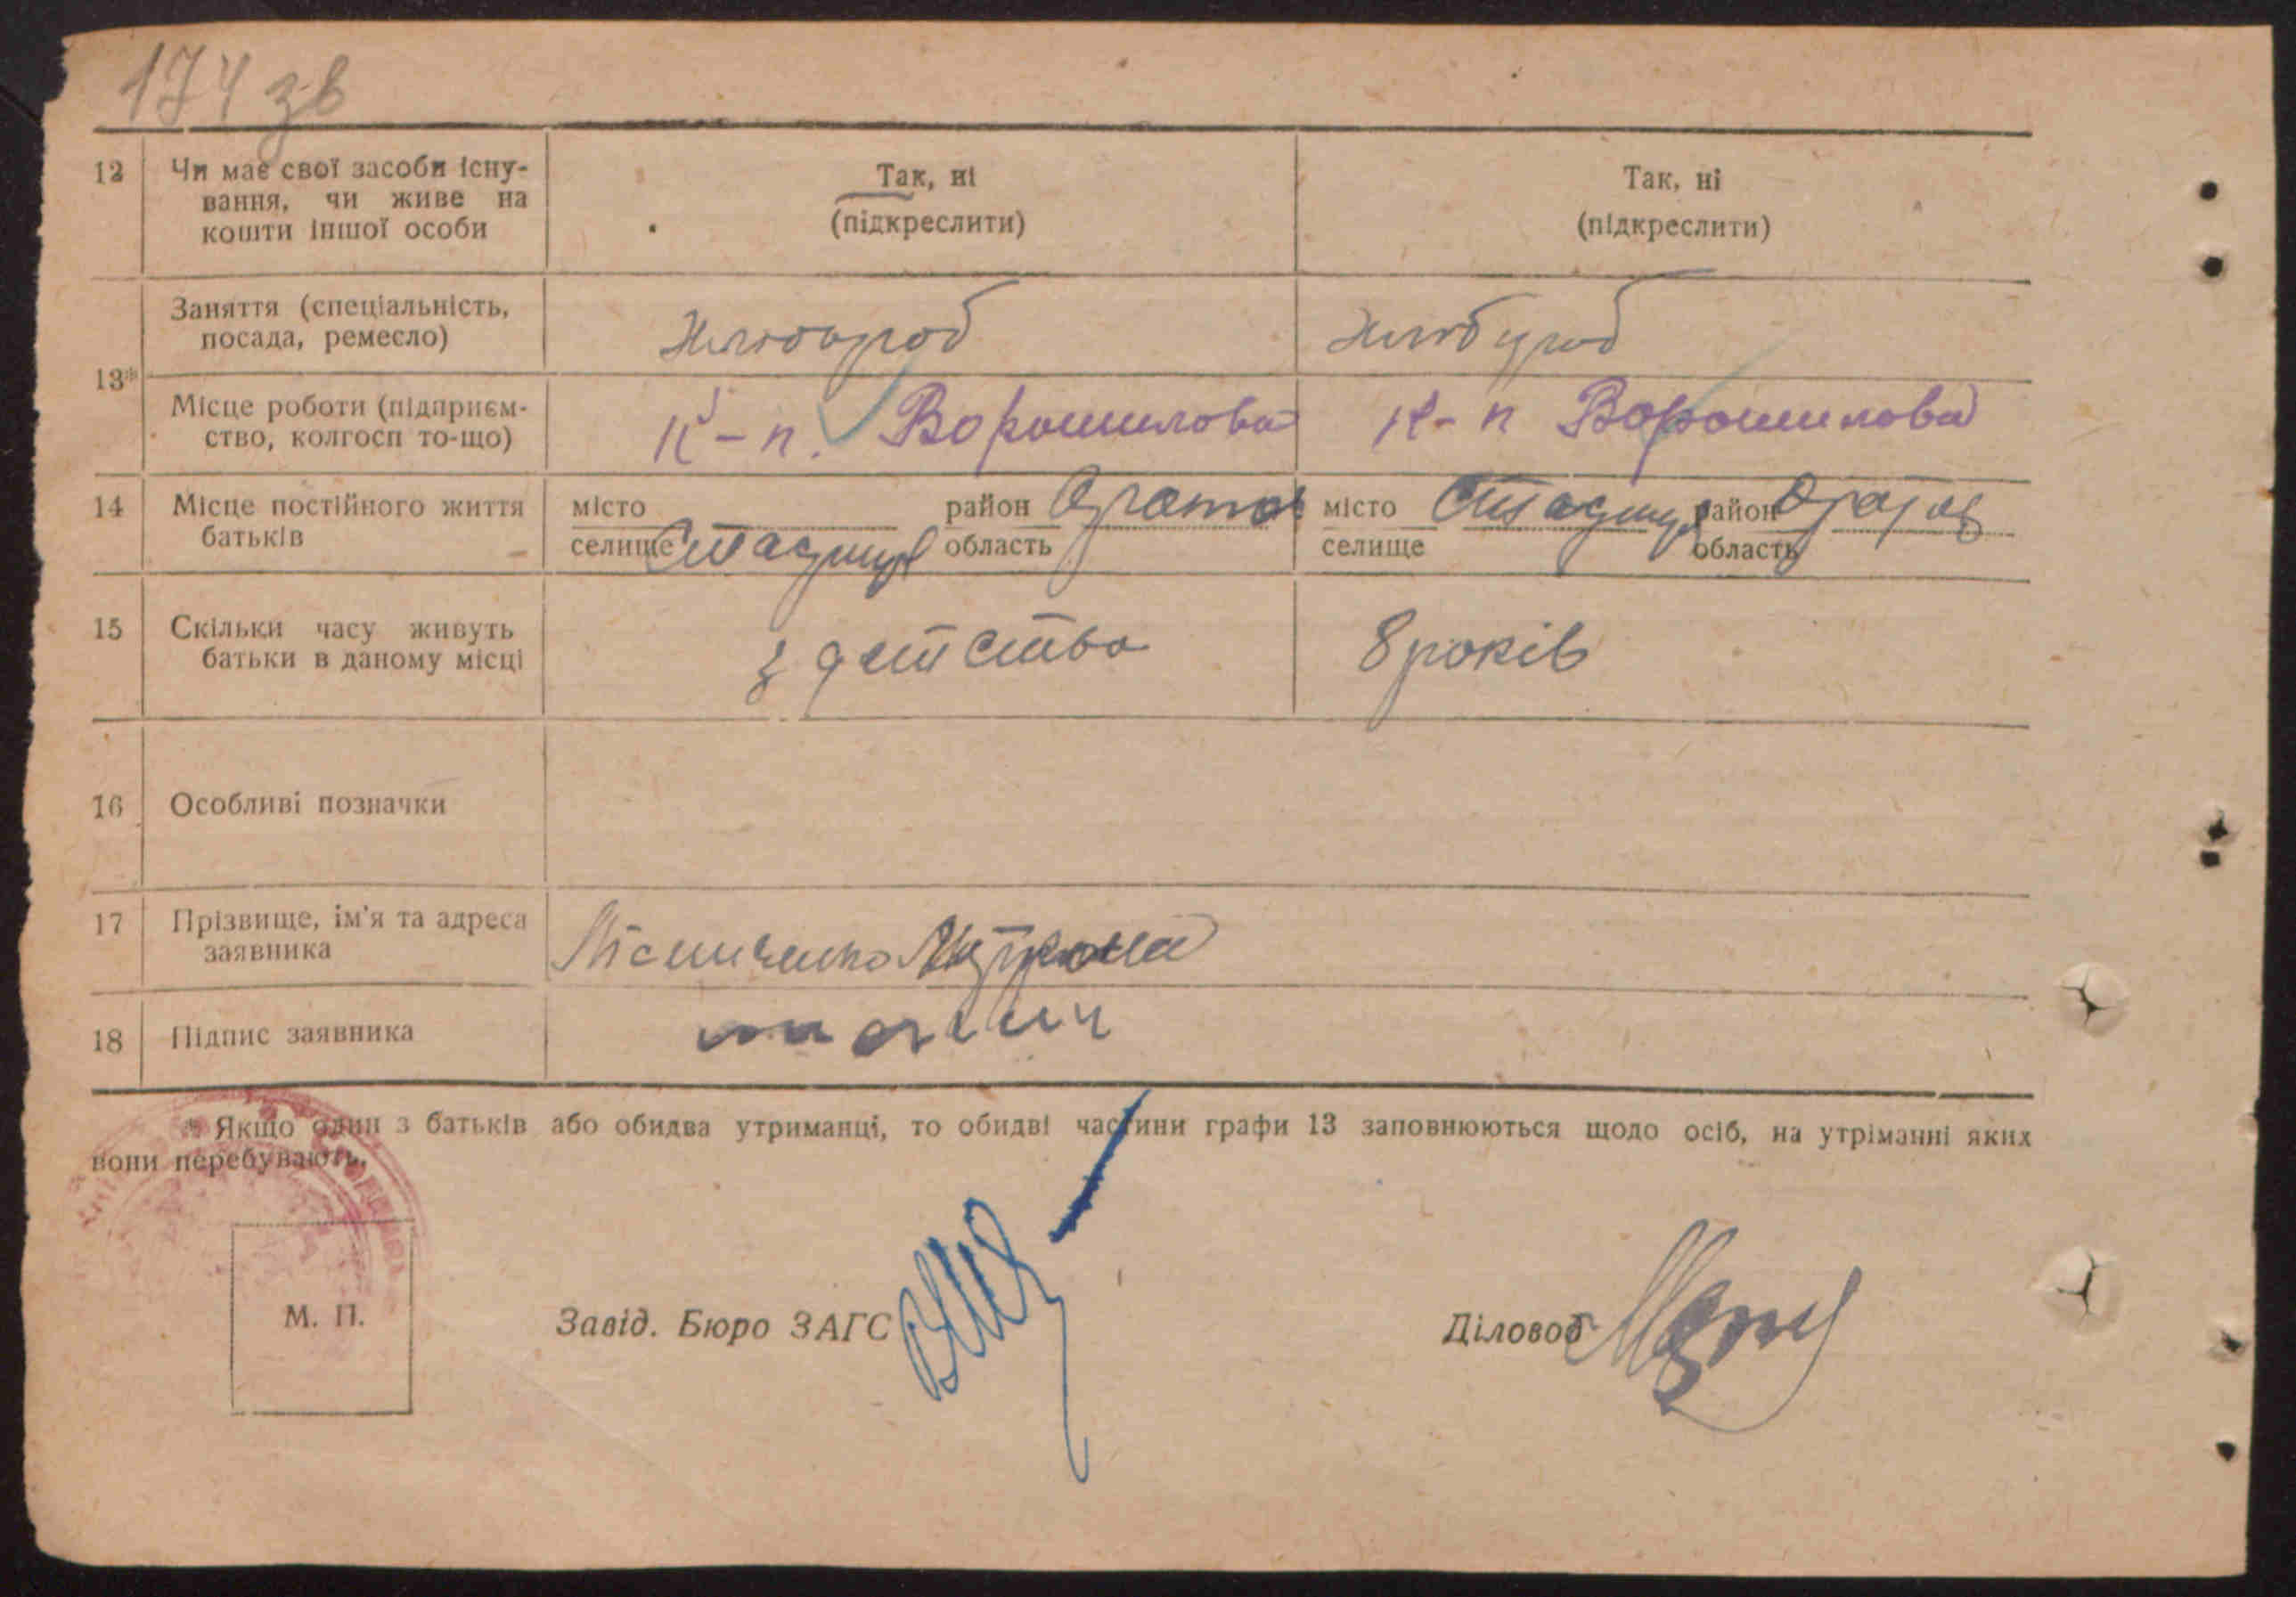 174 зв
12 Чи має свої засоби існу-
вання, чи живе на
кошти іншої особи
Так, ні
(підкреслити)
Так, ні
(підкреслити)
13*
Заняття (спеціальність,
посада, ремесло)
Хлібороб
Хлібороб
Місце роботи (підприєм-
ство, колгосп то-що)
К-п. Ворошилова
К-п Ворошилова
14 Місце постійного життя
батьків
місто район Оратов
селище Стадниця область
місто Стадниця район Оратов
селище область
15 Скільки часу живуть
батьки в даному місці
з детства
8 років
16 Особливі позначки
17 Прізвище, ім'я та адреса
заявника
18 Підпис заявника
* Якщо один з батьків або обидва утриманці, то обидві частини графи 13 заповнюються щодо осіб, на утріманні яких
вони перебувають.
М. П.
Завід. Бюро ЗАГС
Діловод